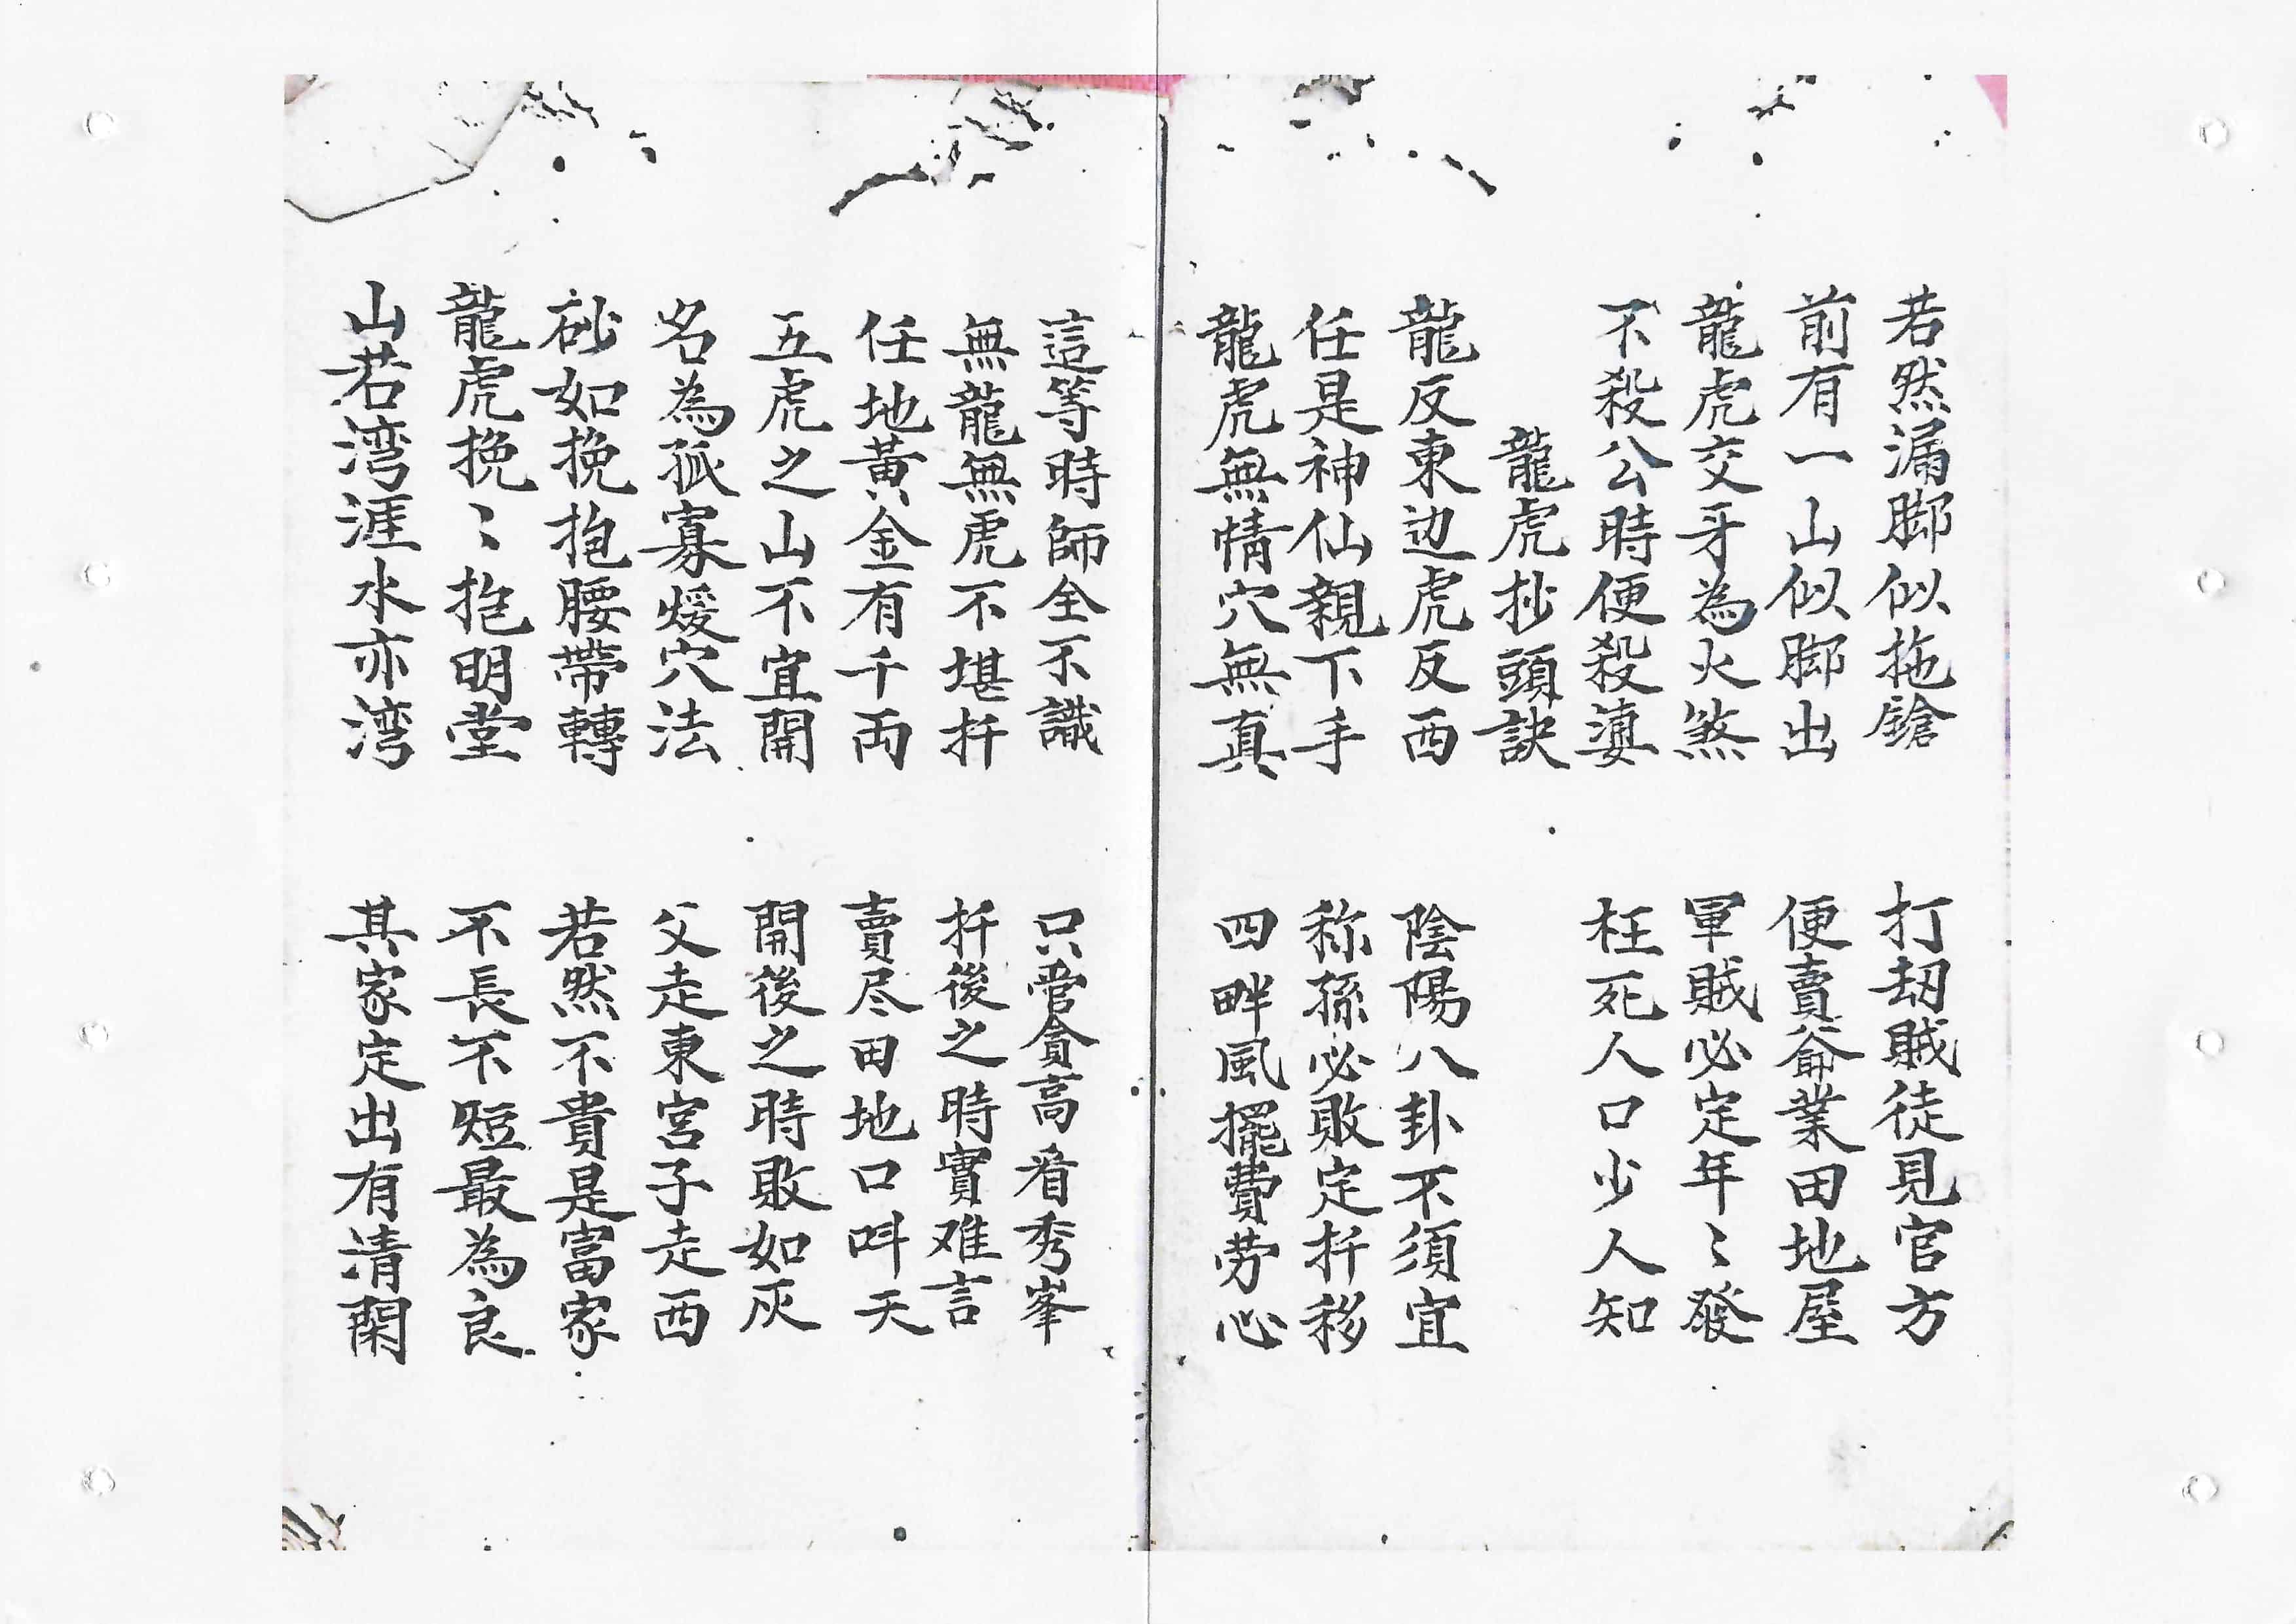 若然漏脚似拖鎗　打刧賊徒見官方
前有一山似脚出　便賣爺業田地屋
龍虎交牙為火煞　軍賊必定年〻發
不殺公時便殺婆　枉死人口少人知
龍虎抄頭訣
龍反東边虎反西　陰陽八卦不須宜
任是神仙親下手　称孫必敗定扦移
龍虎無情穴無真　四畔風擺費劳心
這等時師全不識　只管貪高看秀峯
無龍無虎不堪扦　扦後之時實难言
任地黃金有千両　賣尽田地口呌天
五虎之山不宜開　開後之時敗如灰
名為孤寡煖穴法　父走東宮子走西
砂如挽抱腰帶轉　若然不貴是富家
龍虎挽〻抱明堂　不長不短最為良
山若湾涯水亦湾　其家定出有清閑